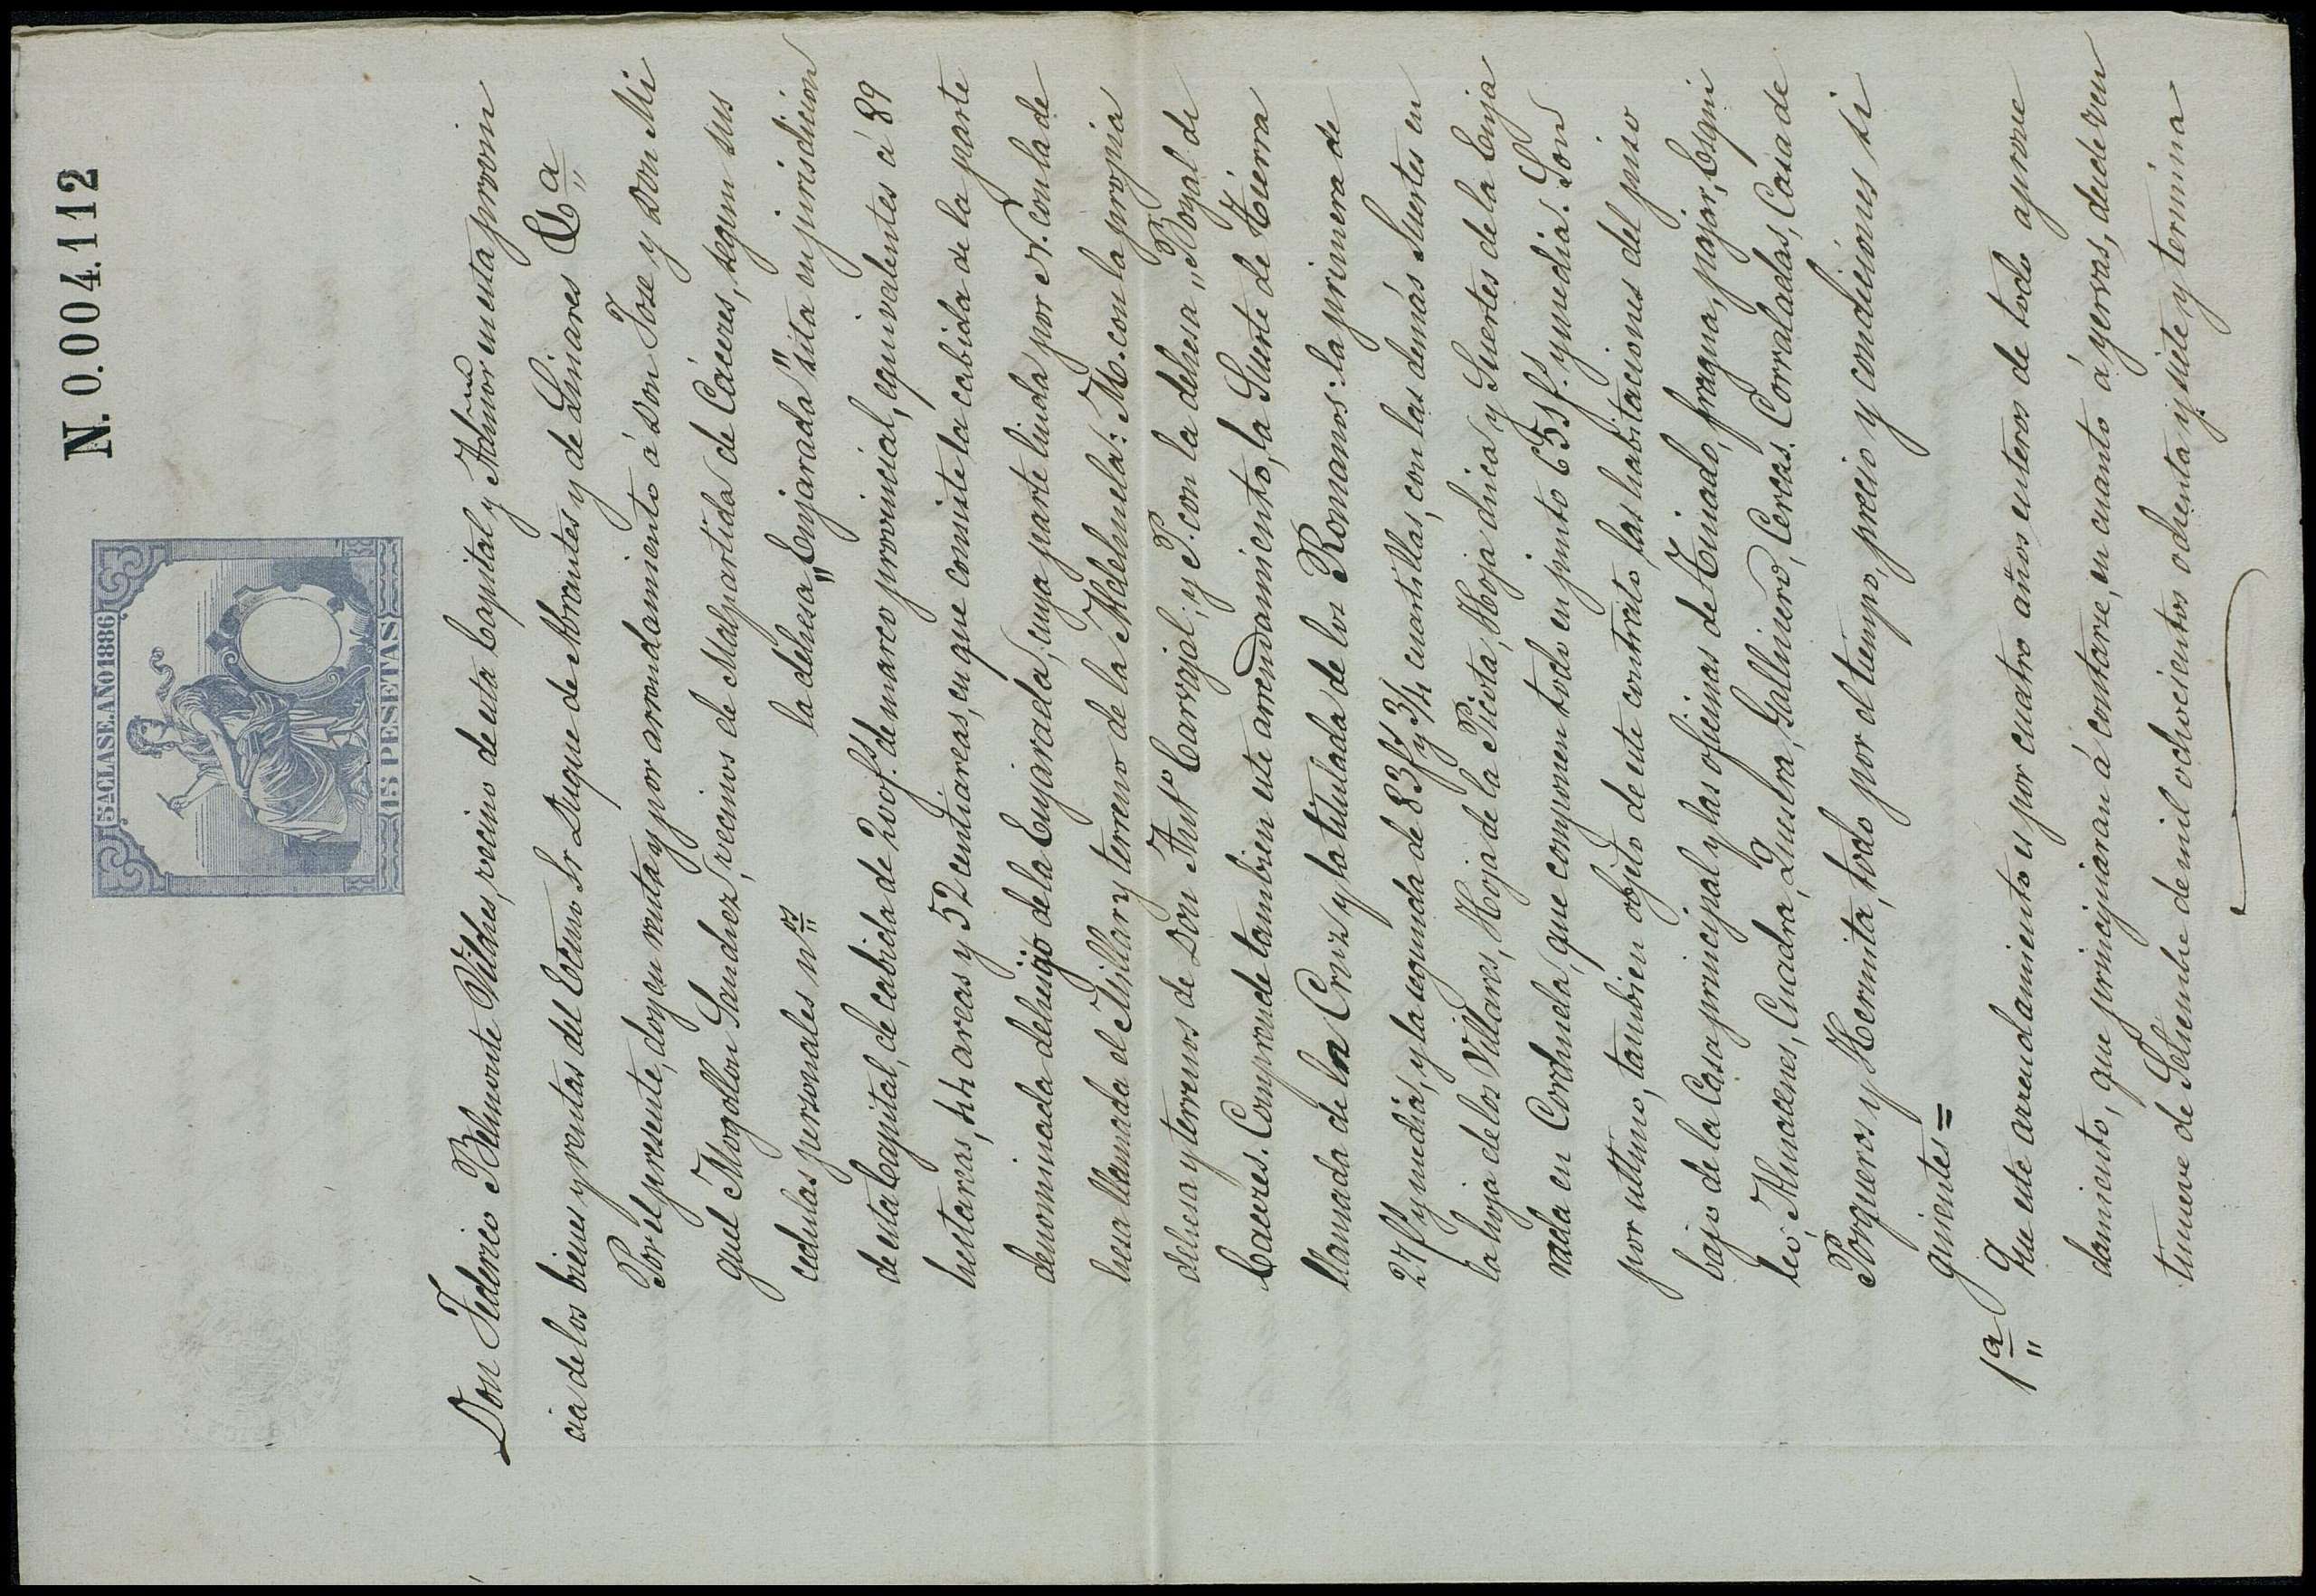 N. 0.004.112
5ª CLASE. AÑO 1886
15 PESETAS
Don Federico Belmonte Vilches, vecino de esta Capital y Admor en esta provin
cia de los bienes y rentas del Excmo Sr Duque de Abrantes y de Linares Etª
Por el presente, doy en renta y por arrendamiento á Don Jose y Don Mi
guel Mogollon Sanchez, vecinos de Malpartida de Cáceres, segun sus
cedulas personales nos la dehesa „Enjarada" sita en jurisdicion
de esta Capital, de cabida de 200 f.s de marco provincial, equivalentes á 89
hectarias, 44 areas y 52 centiareas, en que consiste la cabida de la parte
denominada dehesijo de la Enjarada, cuya parte linda por N. con la de
hesa llamada el Millar y terreno de la Aldehuela: M. con la propia
dehesa y terrenos de Don Antº Carvajal; y P. con la dehesa „Boyal de
Caceres. Comprende tambien este arrendamiento, la Suerte de Tierra
llamada de la Cruz y la titulada de los Romanos: la primera de
27 f.s y media, y la segunda de 83 f.s y 3/4 cuartillas, con las demás Suertes en
la hoja de los Villares, Hoja de la Picota, Hoja chica y Suertes de la Enja
rada en Corchuela, que componen todo en junto 635 f.s y media. Son
por ultimo, tambien objeto de este contrato, las habitaciones del piso
bajo de la Casa principal y las oficinas de Tinado, fragua, pajar, Esqui
leo, Almacenes, Cuadra, Quesera, Gallinero, Cercas. Corraladas, Casa de
Porqueros y Hermita, todo por el tiempo, precio y condiciones si
guientes=
1ª Que este arrendamiento es por cuatro años enteros de todo aprove
chamiento, que principiaran á contarse, en cuanto á yervas, desde ven
tinueve de Setiembre de mil ochocientos ochenta y siete y termina